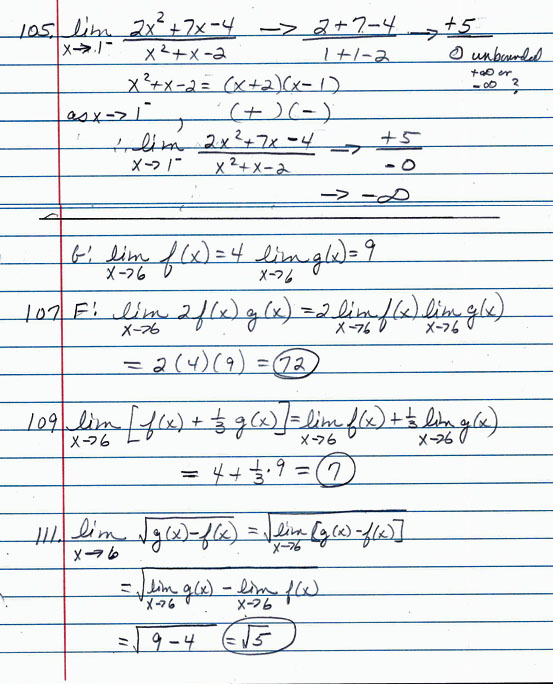 105. lim x→1⁻ (2x²+7x-4)/(x²+x-2) → (2+7-4)/(1+1-2) → +5/0 unbounded +∞ or -∞ ?
x²+x-2 = (x+2)(x-1)
as x→1⁻, (+)(-)
∴ lim x→1⁻ (2x²+7x-4)/(x²+x-2) → +5/-0
→ -∞
G: lim x→6 f(x)=4 lim x→6 g(x)=9
107 F: lim x→6 2f(x)g(x) = 2 lim x→6 f(x) lim x→6 g(x)
= 2(4)(9) = 72
109 lim x→6 [f(x) + 1/3 g(x)] = lim x→6 f(x) + 1/3 lim x→6 g(x)
= 4 + 1/3 · 9 = 7
111. lim x→6 √(g(x)-f(x)) = √(lim x→6 [g(x)-f(x)])
= √(lim x→6 g(x) - lim x→6 f(x))
= √(9-4) = √5